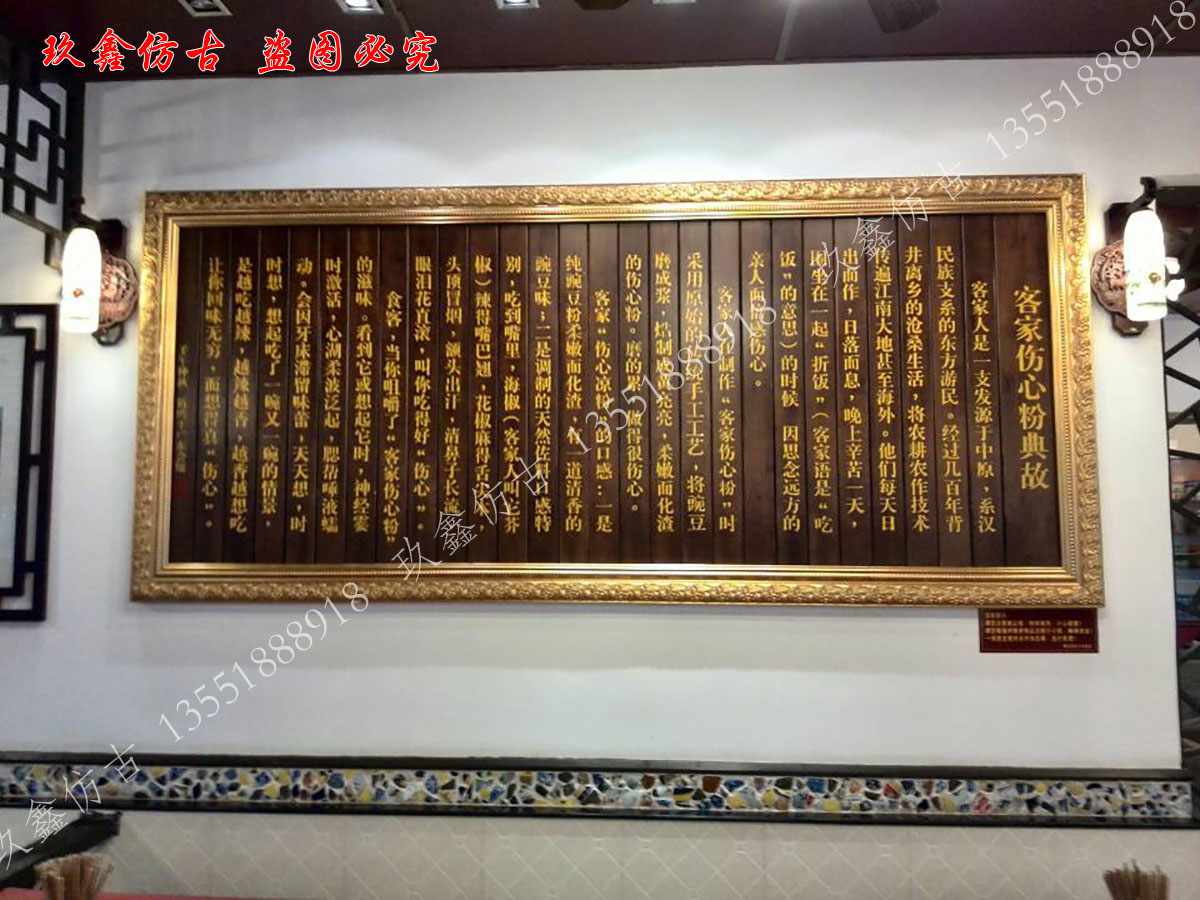 玖鑫仿古 盗图必究
客家伤心粉典故
客家人是一支发源于中原，系汉
民族支系的东方游民。经过几百年背
井离乡的沧桑生活，将农耕农作技术
传遍江南大地甚至海外。他们每天日
出而作，日落而息，晚上辛苦一天，
围坐在一起“折饭”（客家语是“吃
饭”的意思）的时候 因思念远方的
亲人而 伤心。
客家 制作“客家伤心粉”时
采用原始的 手工工艺，将豌豆
磨成浆，焙制 亮，柔嫩而化渣
的伤心粉。磨的累，做得很伤心。
客家“伤心凉粉”的口感：一是
纯豌豆粉柔嫩而化渣， 一道清香的
豌豆味；二是调制的天然佐料 感特
别，吃到嘴里，海椒（客家人叫芥
椒）辣得嘴巴翘，花椒麻得舌 木，
头顶冒烟，额头出汗，清鼻子长流
眼泪花直滚，叫你吃得好“伤心”。
食客，当你咀嚼了“客家伤心粉”
的滋味。看到它或想起它时，神经霎
时激活，心湖柔波泛起，腮帮唾液蠕
动。会因牙床滞留味蕾，天天想，时
时想，想起吃了一碗又一碗的情景，
是越吃越辣，越辣越香，越香越想吃
让你回味无穷，而想得真“伤心”。
玖鑫仿古 13551888918
玖鑫仿古 13551888918
玖鑫仿古 13551888918